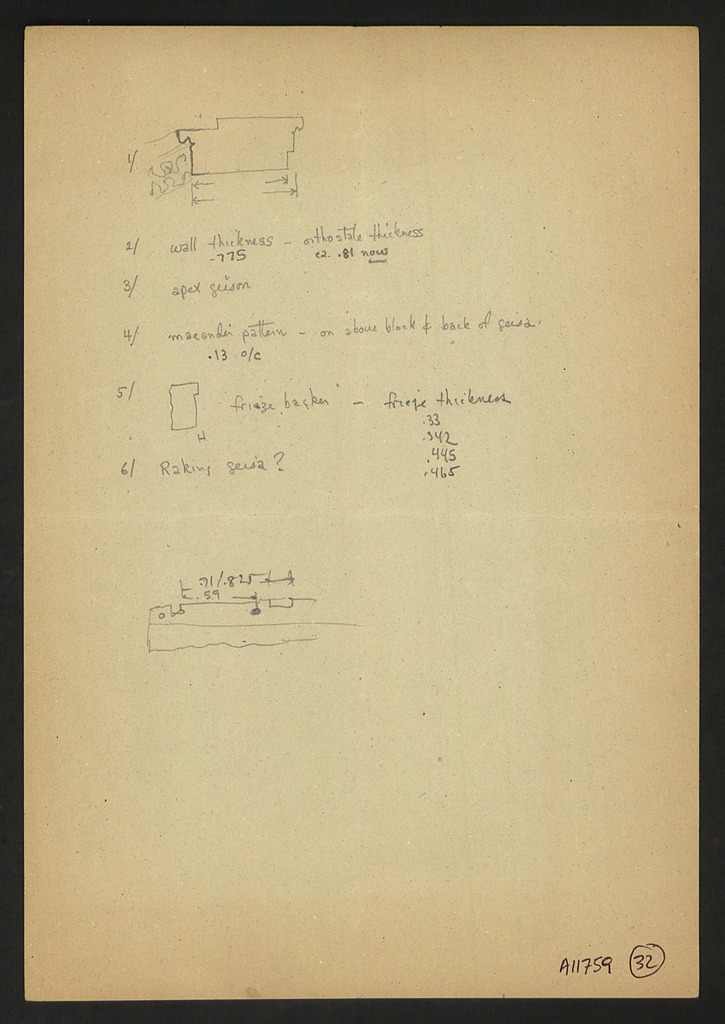 1/
2/ wall thickness - orthostate thickness
.775 ca. .81 now
3/ apex geison
4/ maeander pattern - on above block & back of geisa.
.13 o/c
5/ frieze backer - frieze thickness
H
.33
.342
.445
.465
6/ Raking geisa?
.71/.825
.59
A11759 32